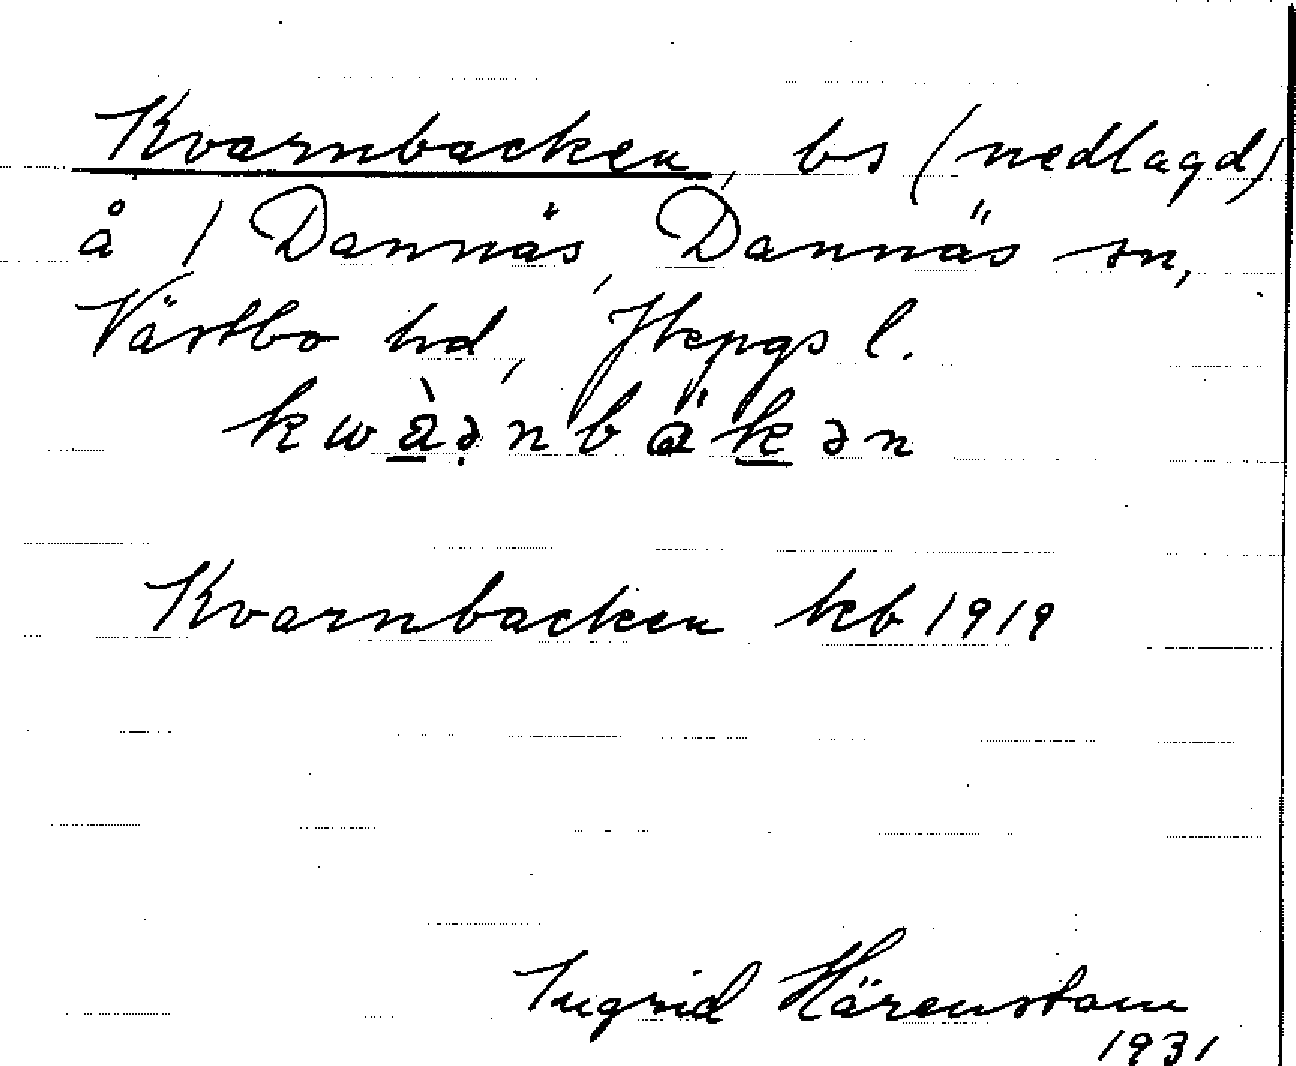 Kvarnbacken, bs (nedlagd)
å 1 Dannäs, Dannäs sn,
Västbo hd, Jkpgs l.
kwàə̣nbäkən
Kvarnbacken kb 1919
Ingrid Härenstam
1931